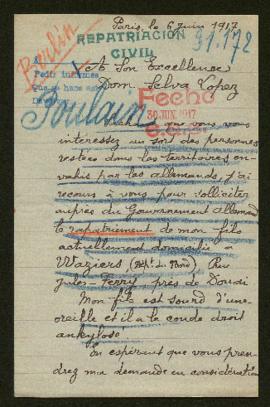 Paris, le 6 Juin 1917
Berlín
REPATRIACION
CIVIL
91.172
A Son Excellence
Pedir informes
Dom. Salva Lopez
Que se hace este
Fecho
30 JUN. 1917
Poulain
que vous vous
intéressez au sort des personnes
restées dans les territoires en-
vahis par les allemands, j'ai
recours à vous pour solliciter
auprès du Gouvernement allemand
le rapatriement de mon fils
actuellement domicilié à
Waziers (Dépt du Nord) Rue
Jules-Ferry près de Douai
Mon fils est sourd d'une
oreille et il a le coude droit
ankylosé
En espérant que vous pren-
drez ma demande en considération